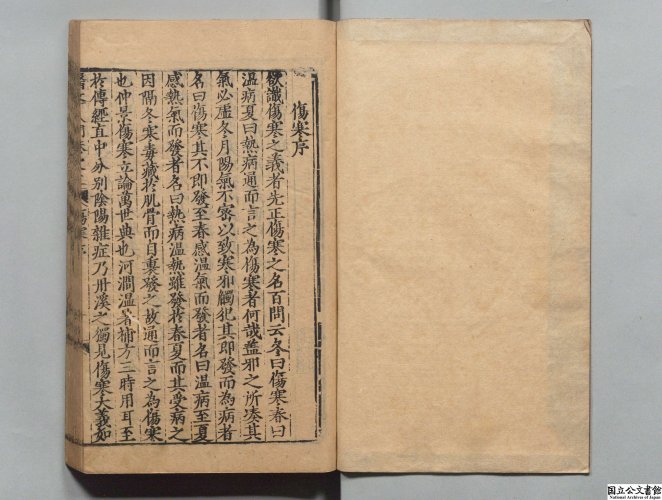 傷寒序
欲識傷寒之義者先正傷寒之名百問云冬曰傷寒春曰
温病夏曰熱病通而言之為傷寒者何哉蓋邪之所凑其
氣必虛冬月陽氣不密以致寒邪觸犯其即發而為病者
名曰傷寒其不即發至春感温氣而發者名曰温病至夏
感熱氣而發者名曰熱病温熱雖發於春夏而其受病之
因隔冬寒毒藏於肌骨而自裏發之故通而言之為傷寒
也仲景傷寒立論萬世典也河澗温暑補方三時用耳至
於傳經直中分别陰陽雜症乃丹溪之獨見傷寒大義如
醫 入門卷之 傷寒序
国立公文書館
National Archives of Japan